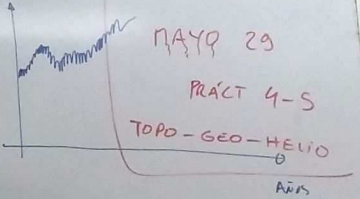 MAYO 29
PRÁCT 4-5
TOPO-GEO-HELIO
AÑOS